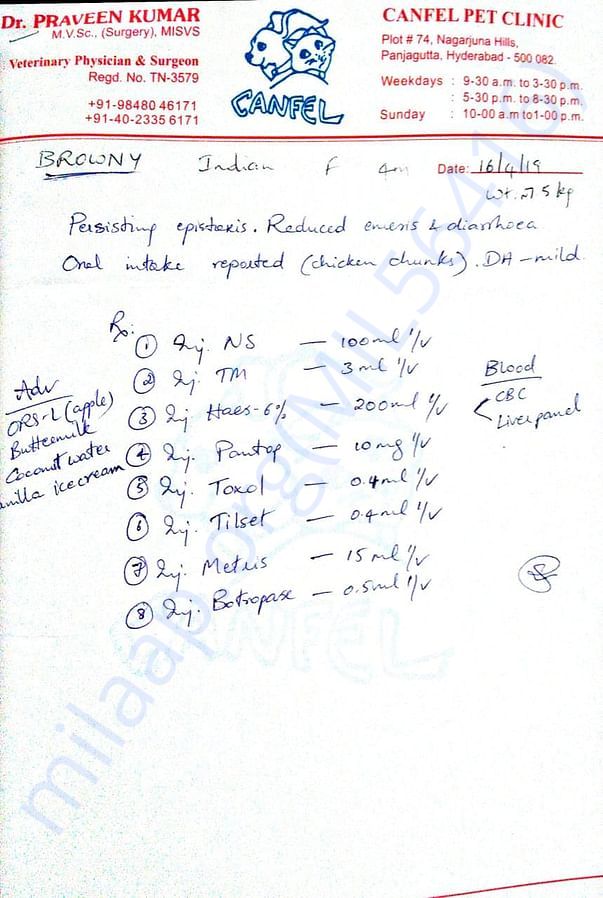 Dr. PRAVEEN KUMAR
M.V.Sc., (Surgery), MISVS
Veterinary Physician & Surgeon
Regd. No. TN-3579
+91-98480 46171
+91-40-2335 6171
CANFEL
CANFEL PET CLINIC
Plot # 74, Nagarjuna Hills,
Panjagutta, Hyderabad - 500 082.
Weekdays : 9-30 a.m. to 3-30 p.m.
: 5-30 p.m. to 8-30 p.m.
Sunday : 10-00 a.m to1-00 p.m.
BROWNY Indian F 4m Date: 16/4/19
Wt. 5 kg
Persisting epistaxis. Reduced emesis & diarrhoea
Oral intake reported (chicken chunks). DH - mild
Rx:
1 Inj. NS - 100ml I/V
2 Inj. TM - 3ml I/V
3 Inj Haes-6% - 200ml I/V
4 Inj. Pantop - 10mg I/V
5 Inj. Toxol - 0.4ml I/V
6 Inj. Tilset - 0.4ml I/V
7 Inj. Metris - 15ml I/V
8 Inj. Botropase - 0.5ml I/V
Adv
ORS-L (apple)
Buttermilk
Coconut water
anilla icecream
Blood
CBC
Liver panel
CANFEL
milaap.org(MIL564167)